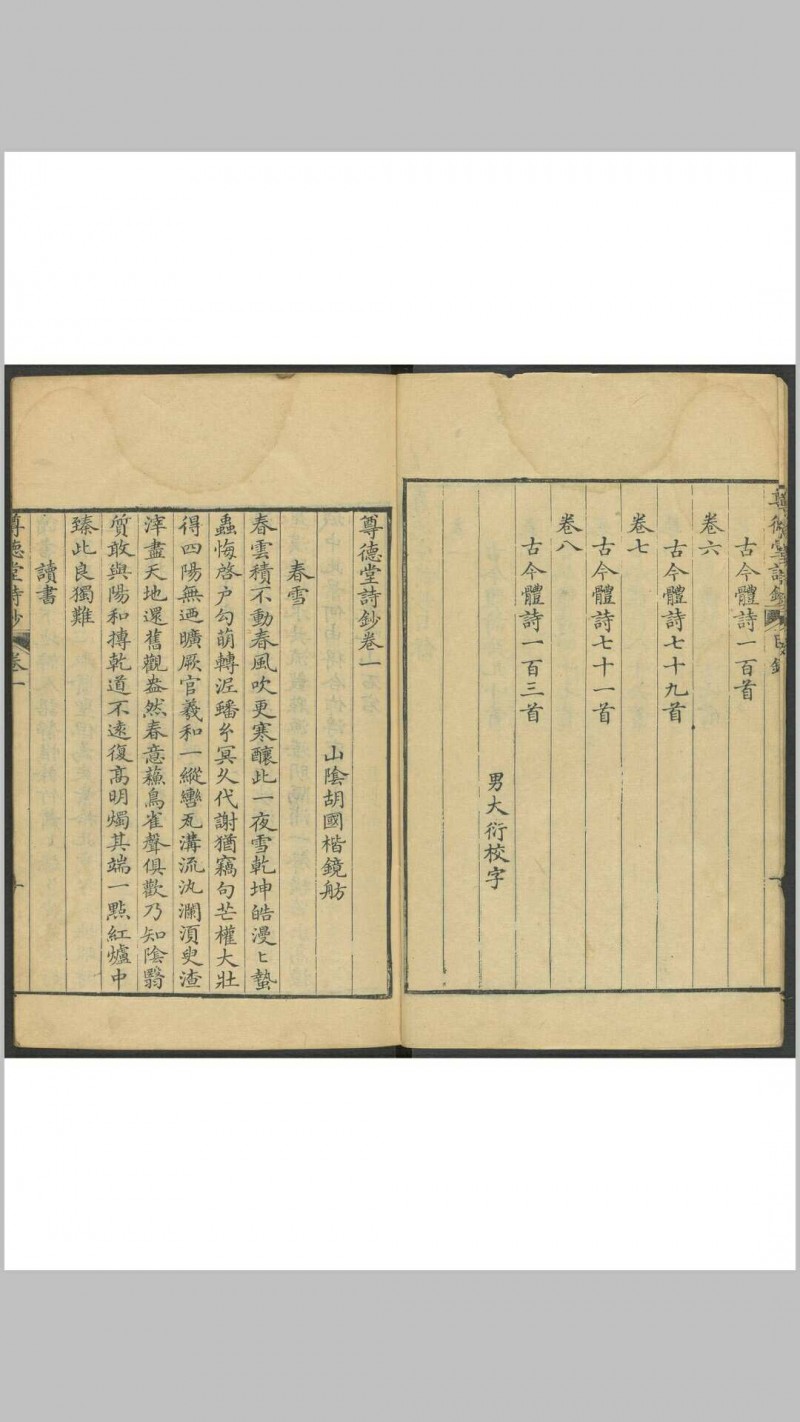 尊德堂詩鈔 目錄
古今體詩一百首
卷六
古今體詩七十九首
卷七
古今體詩七十一首
卷八
古今體詩一百三首
男大衍校字
尊德堂詩鈔卷一
山陰胡國楷鏡舫
春雪
春雲積不動春風吹更寒釀此一夜雪乾坤皓漫〻蟄
蟲悔啓户勾萌轉泥蟠兮冥久代謝猶竊句芒權大壯
得四陽無迺曠厥官羲和一縱轡瓦溝流汍瀾湏臾渣
滓盡天地還舊觀盎然春意蘇鳥雀聲俱歡乃知陰翳
質敢與陽和摶乾道不遠復高明燭其端一點紅爐中
臻此良獨難
讀書
尊德堂詩鈔 卷一 一